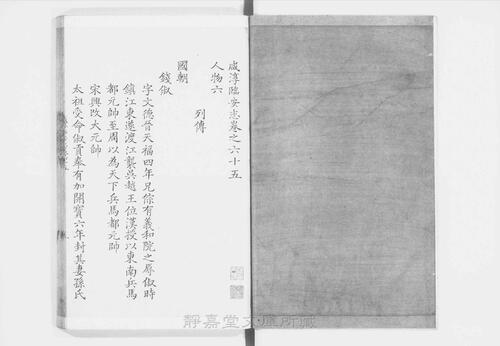 咸淳臨安志卷之六十五
人物六
列傳
國朝
錢俶
字文德晉天福四年兄倧有義和院之辱俶時
鎮江東遂渡江襲吳越王位漢授以東南兵馬
都元帥至周以為天下兵馬都元帥
宋興改大元帥
太祖受命俶貢奉有加開寶六年封其妻孫氏
静嘉堂文庫所蔵